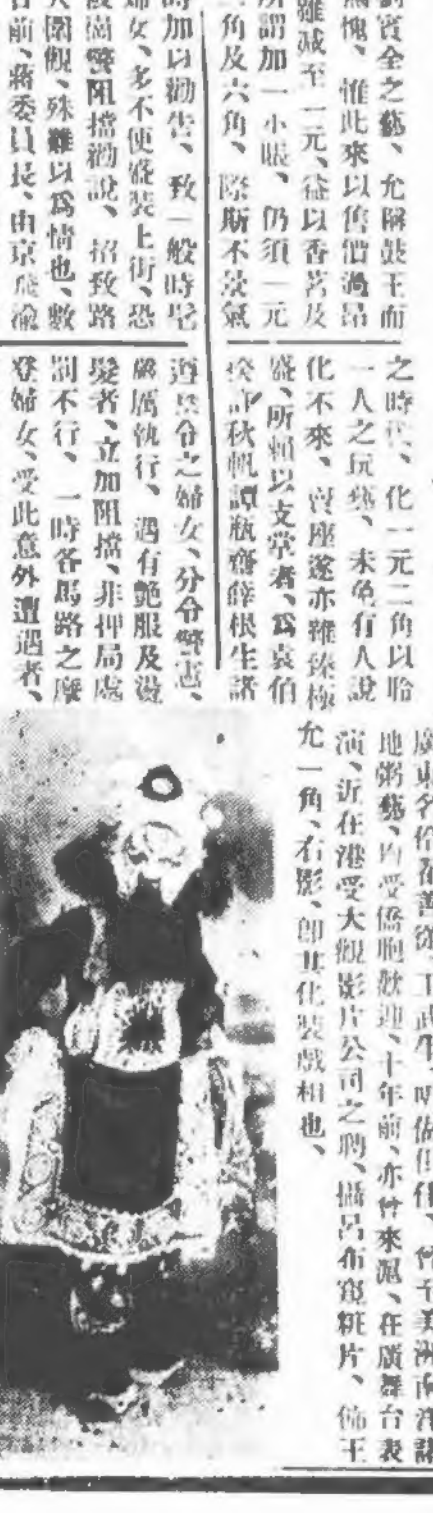 賓全之藝、允稱鼓王而
愧、惟此來以售價過昂
雖減至一元、益以香茗及
所謂加一小賬、仍須一元
角及六角、際斯不景氣
之時代、化一元二角以聆
一人之玩藝、未免有人說
化不來、賣座遂亦難臻極
盛、所賴以支掌者、爲袁伯
秋帆譚瓶齋薛根生諸
時加以勸告、致一般時髦
婦女、多不便盛裝上街、恐
崗警阻擋勸說、招致路
人圍觀、殊難以爲情也、數
日前、蔣委員長、由京飛渝
遵禁令之婦女、分令警憲、
嚴厲執行、遇有艶服及燙
髮者、立加阻擋、非押局處
罰不行、一時各馬路之摩
登婦女、受此意外遭遇者、
廣東名伶 善 工武生
地粥藝、均受僑胞歡迎、十年前、亦曾來滬、在廣舞台表
演、近在港受大觀影片公司之聘、攝呂布窺粧片、飾王
允一角、右影、即其化裝戲相也、